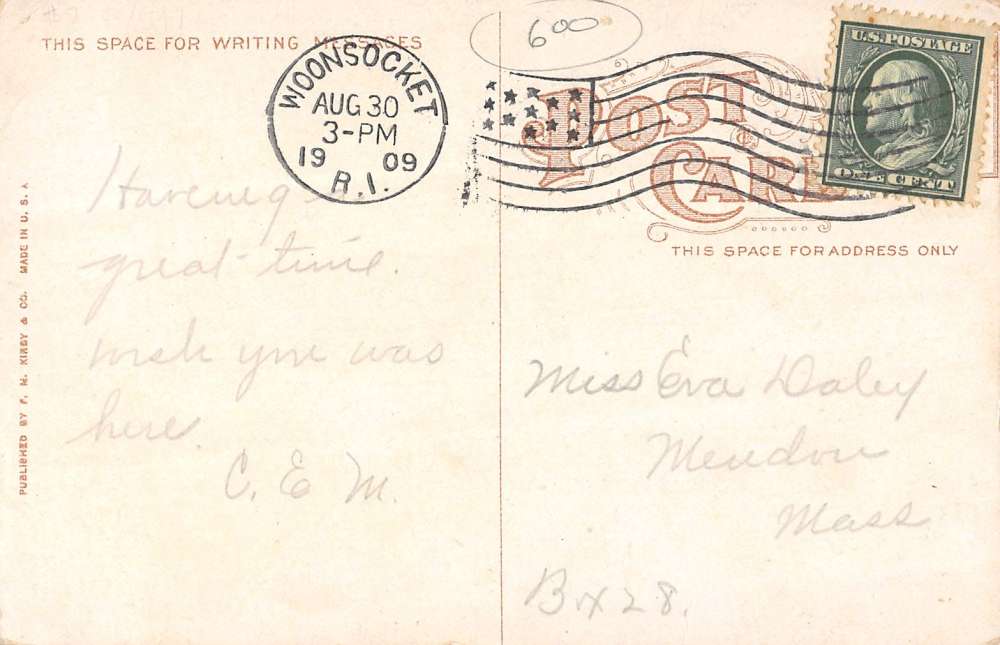 THIS SPACE FOR WRITING MESSAGES
600
WOONSOCKET
AUG 30
3-PM
19 09
R.I.
U.S. POSTAGE
ONE CENT
POST CARD
THIS SPACE FOR ADDRESS ONLY
PUBLISHED BY F. M. KIRBY & CO. MADE IN U. S. A
Haveing a
great time.
wish you was
here.
C. E M.
Miss Eva Daley
Mendon
Mass
Box 28.